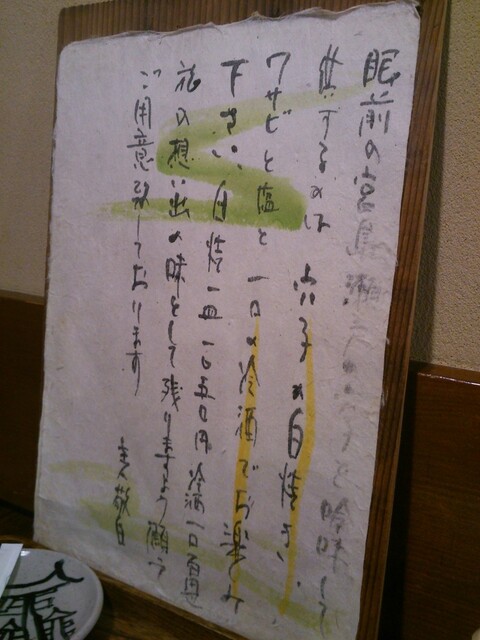 眼前の宮島瀬戸の穴子を吟味して
供するのは 穴子の白焼き、
ワサビと塩と 一口の冷酒でお楽しみ
下さい、白焼一皿一〇五〇円 冷酒一口
旅の想い出の味として残りますよう願って
ご用意致しております
主人敬白